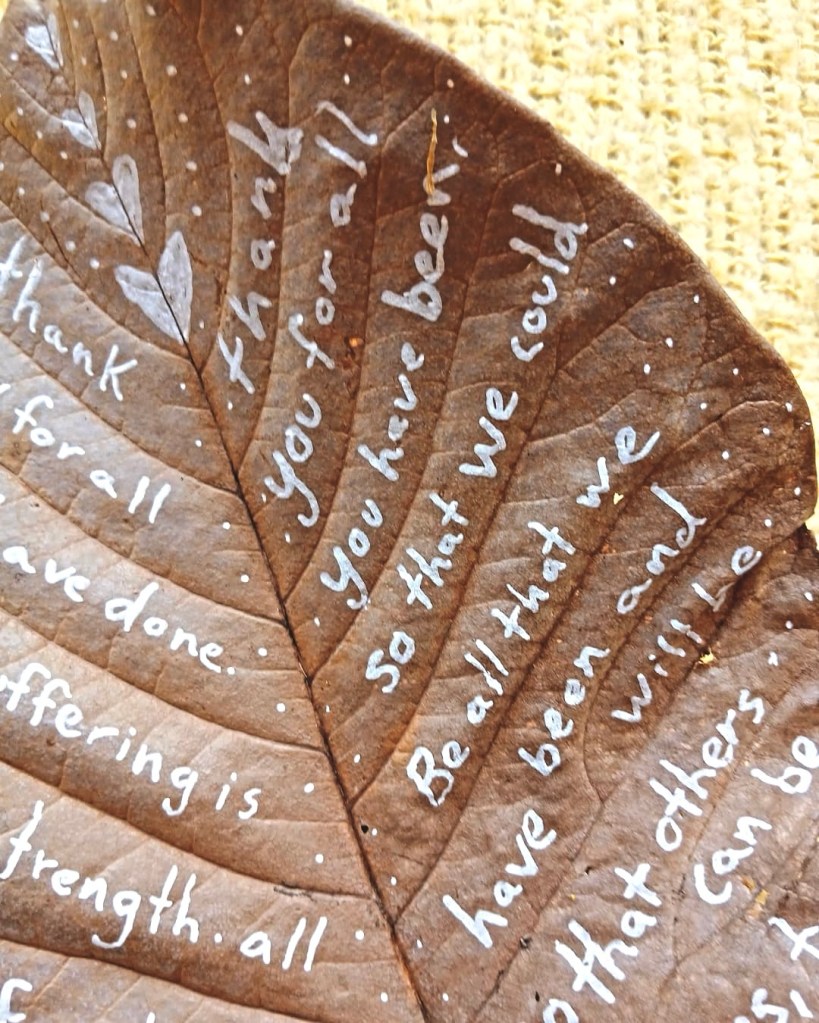 thank
for all
ave done.
ffering is
trength. all
thank
you for all
you have been.
so that we could
Be all that we
have been and
will be
that others
can be